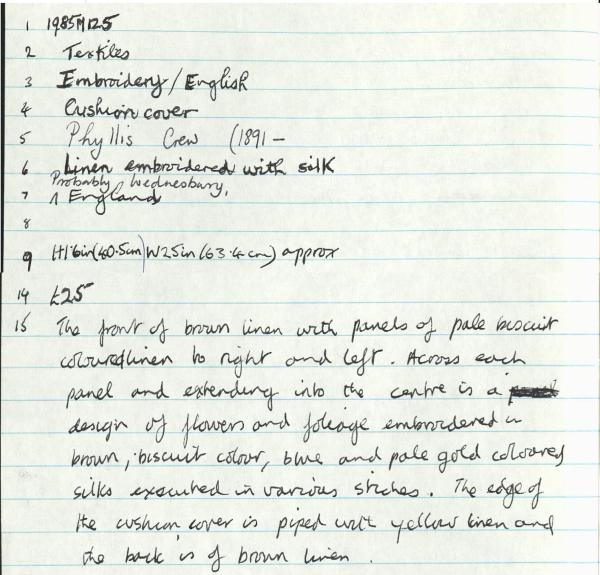 1 1985M125
2 Textiles
3 Embroidery/English
4 Cushion cover
5 Phyllis Crew (1891 -
6 Linen embroidered with silk
Probably Wednesbury,
7 ʌ England
8
9 H16in(40.5cm) W25in(63.4cm) approx
14 £25
15 The front of brown linen with panels of pale biscuit
coloured linen to right and left. Across each
panel and extending into the centre is a
design of flowers and foliage embroidered in
brown, biscuit colour, blue and pale gold coloured
silks executed in various stiches. The edge of
the cushion cover is piped with yellow linen and
the back is of brown linen.